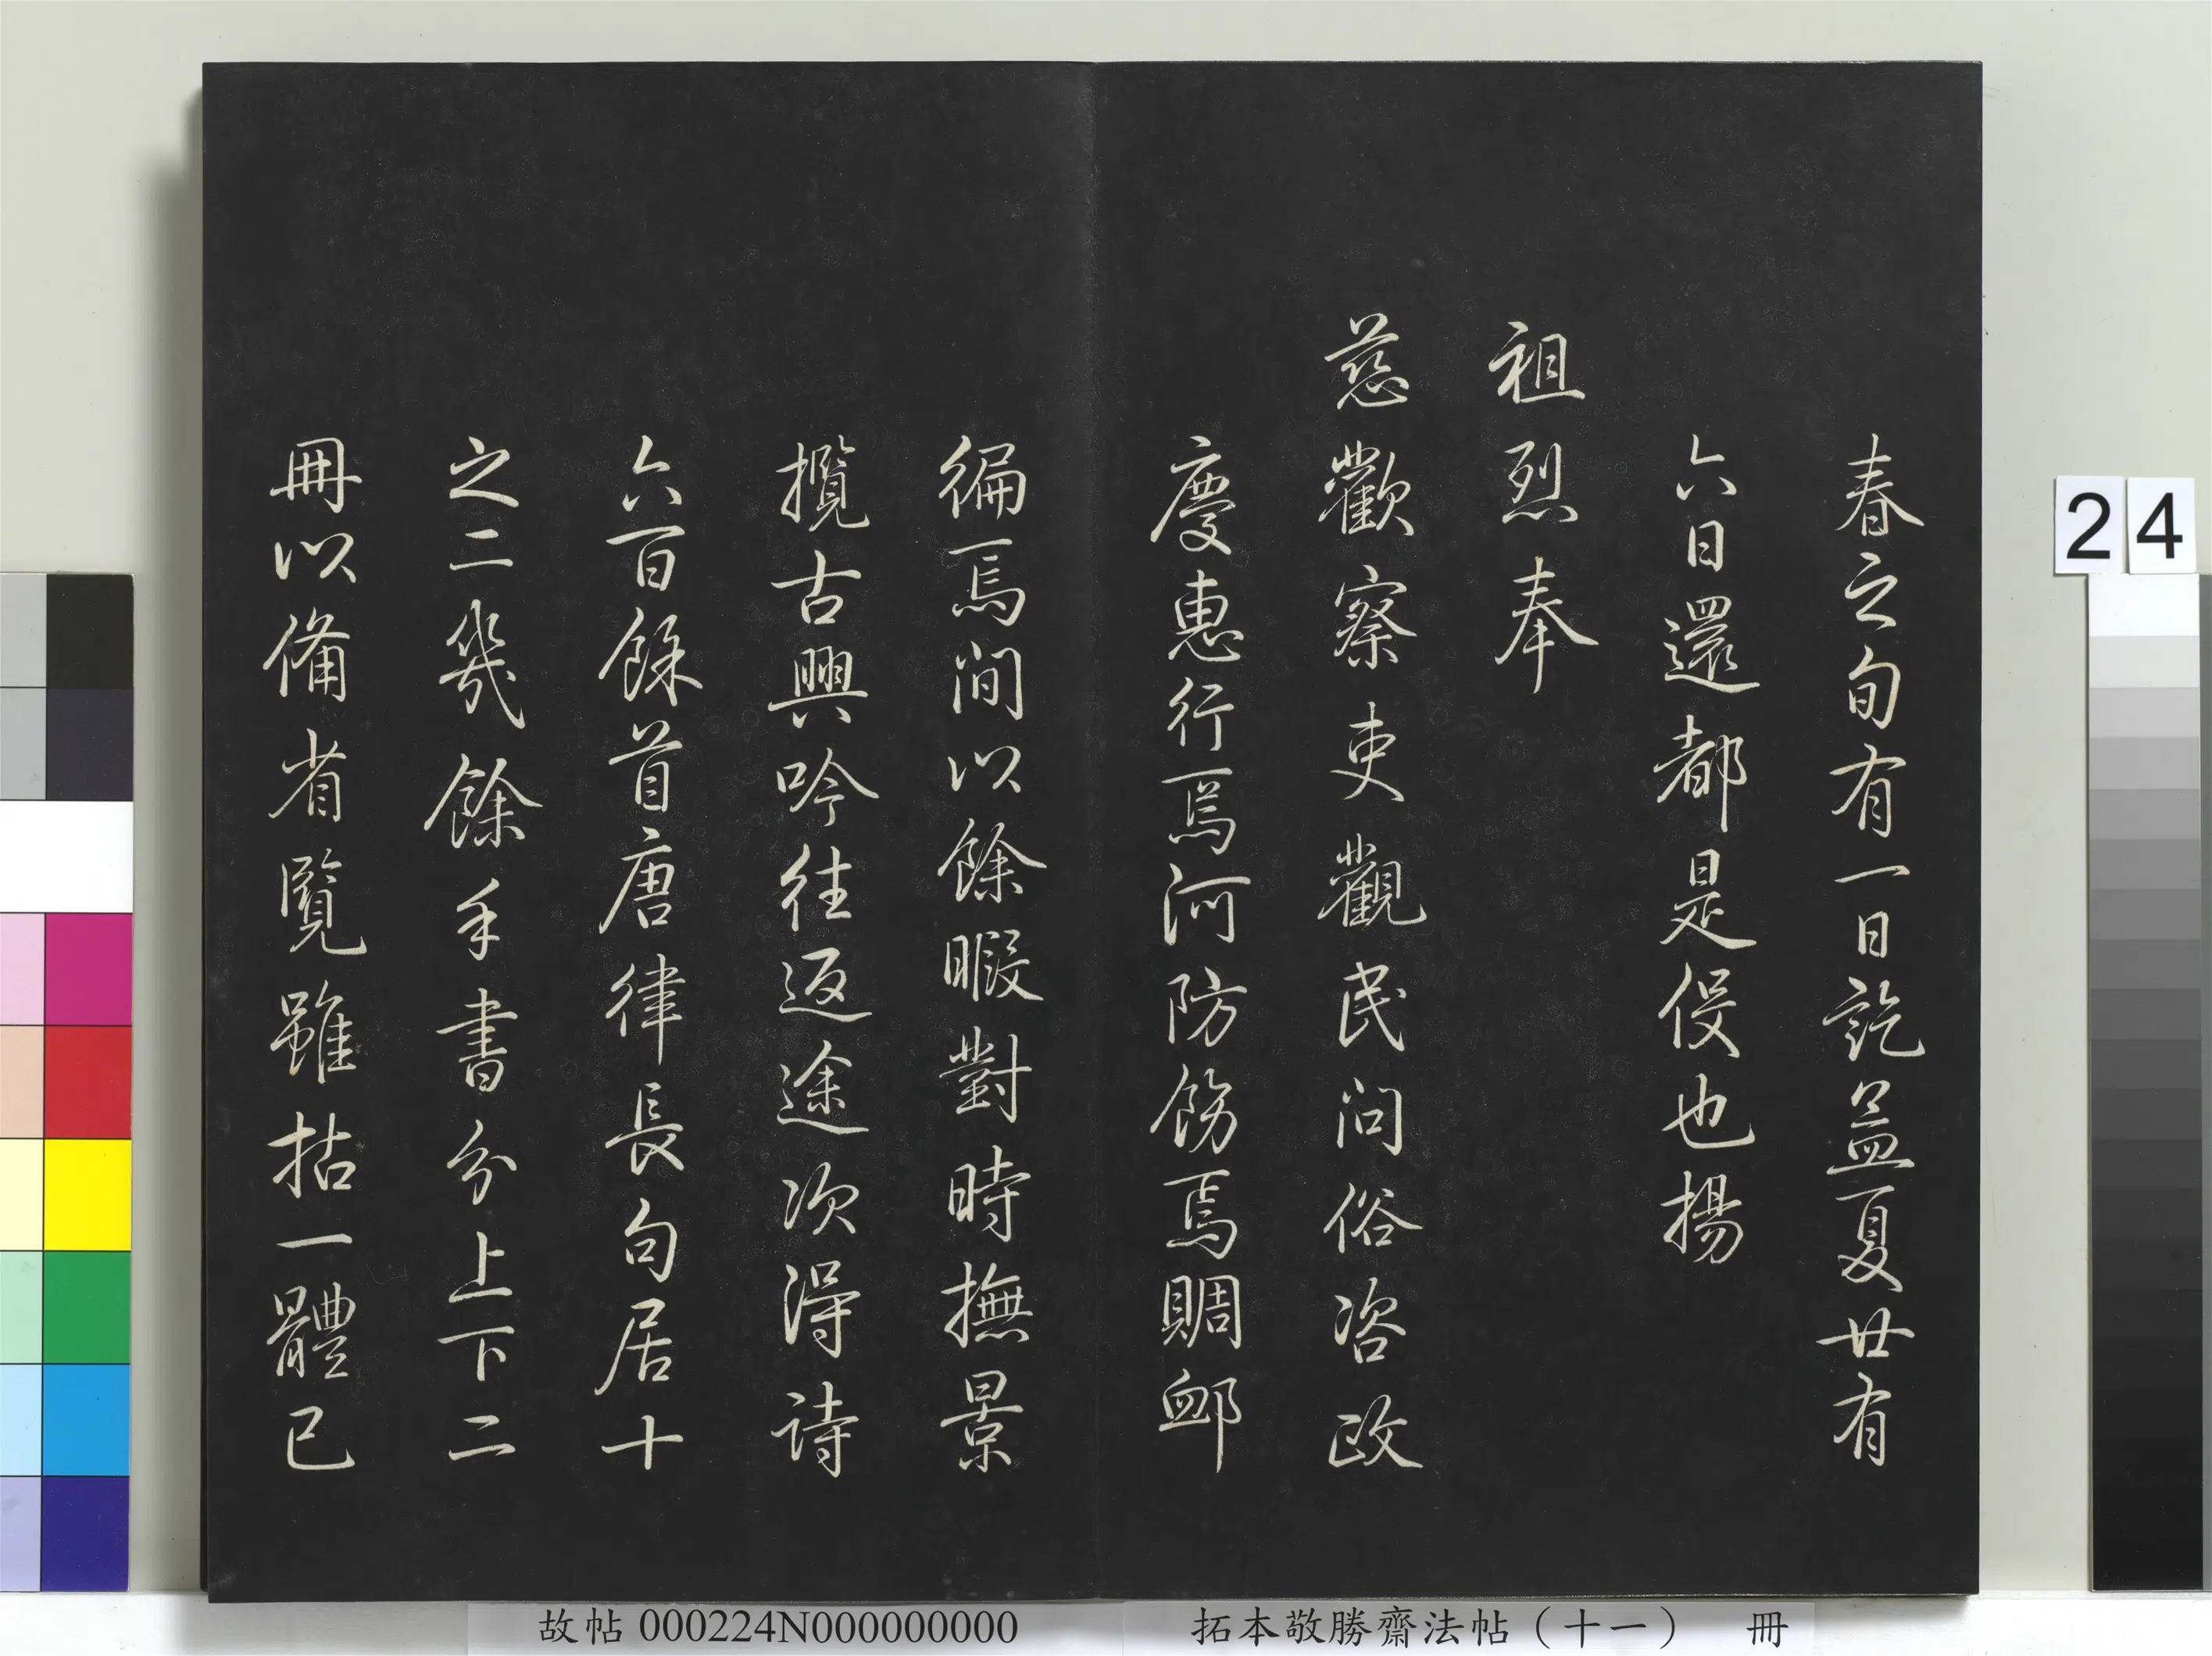 春之旬有一日訖孟夏廿有
六日還都是役也揚
祖烈奉
慈歡察吏觀民問俗咨政
慶惠行焉河防飭焉賙卹
徧焉間以餘暇對時撫景
攬古興吟往返途次得詩
六百餘首唐律長句居十
之二幾餘手書分上下二
冊以備省覽雖拈一體已
24
故帖 000224N000000000
拓本敬勝齋法帖（十一） 冊